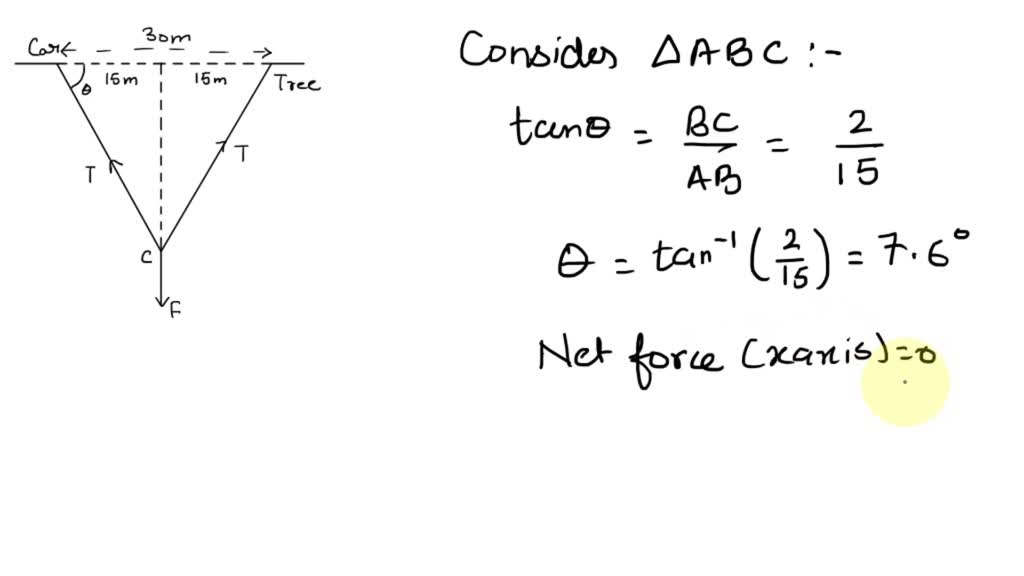 30m
Car
15m
15m
θ
Tree
T
T
C
F
Consides ΔABC :-
tanθ = BC/AB = 2/15
θ = tan⁻¹(2/15) = 7.6°
Net force (xaxis)=0